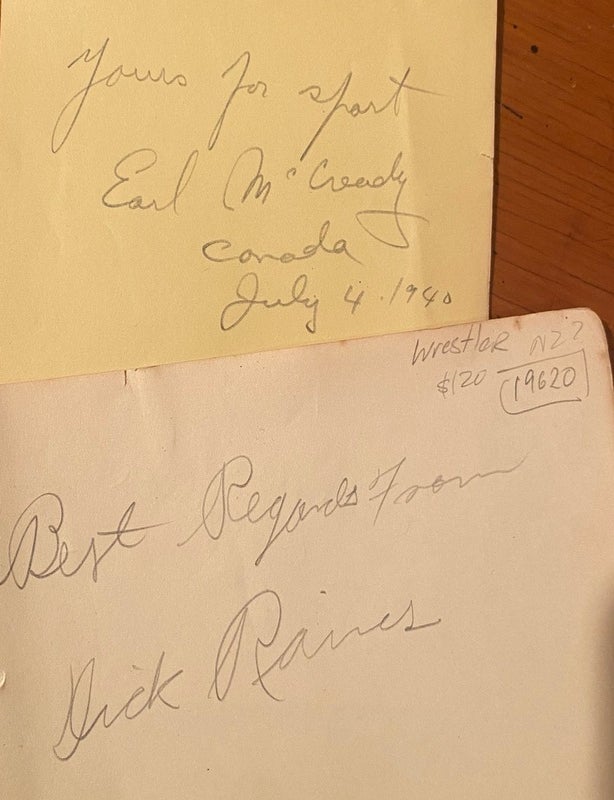 Yours for sport
Earl McCready
Canada
July 4. 1940
Wrestler NZ?
$120 19620
Best Regards From
Dick Raines